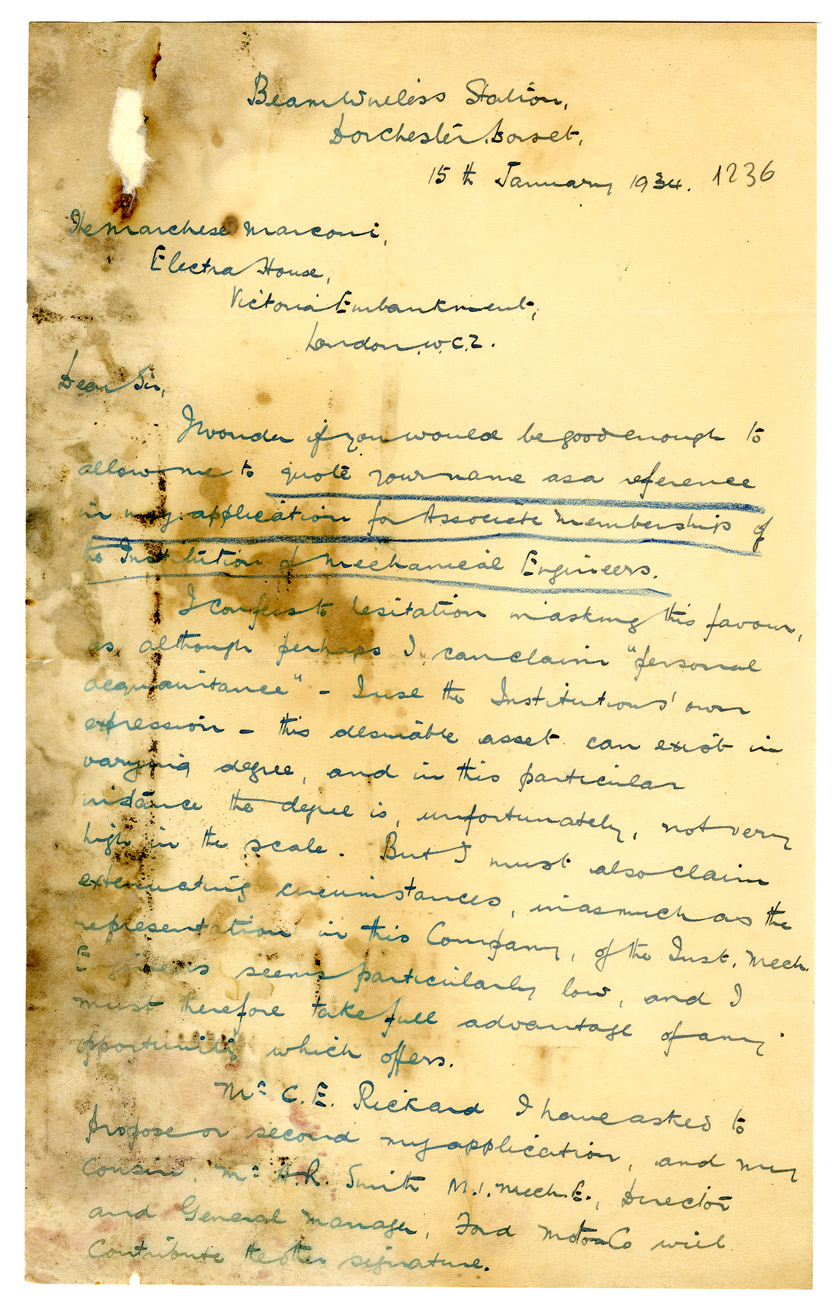 Beam Wireless Station,
Dorchester. Dorset.
15th January 1934. 1236
The Marchese Marconi,
Electra House,
Victoria Embankment,
London. W.C.2.
Dear Sir,
I wonder if you would be good enough to
allow me to quote your name as a reference
in my application for Associate Membership of
the Institution of Mechanical Engineers.
I confess to hesitation in asking this favour,
as although perhaps I can claim "personal
acquaintance" - I use the Institutions' own
expression - this desirable asset can exist in
varying degree, and in this particular
instance the degree is, unfortunately, not very
high in the scale. But I must also claim
extenuating circumstances, inasmuch as the
representation in this Company, of the Inst. Mech.
Engineers seems particularly low, and I
must therefore take full advantage of any
opportunity which offers.
Mr C. E. Rickard I have asked to
propose or second my application, and my
Cousin, Mr A. R. Smith M.I.Mech.E., Director
and General Manager, Ford Motor Co will
contribute the other signature.